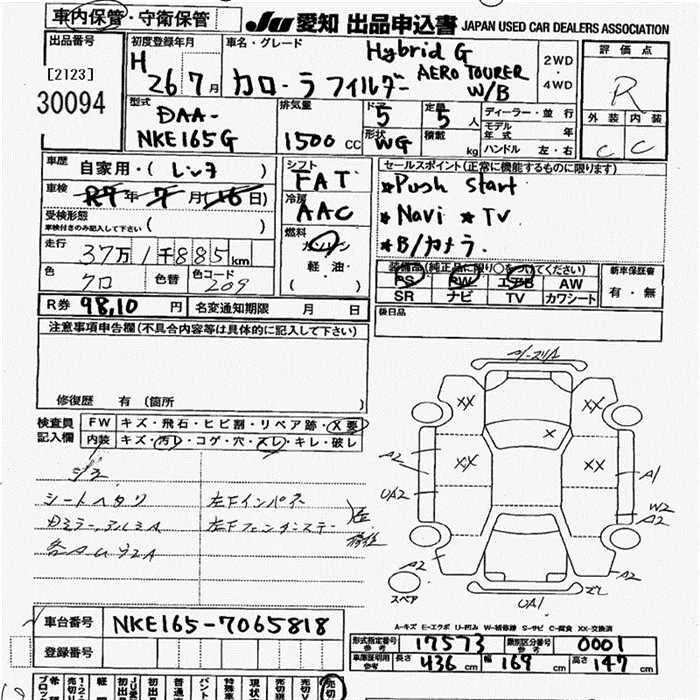 車内保管・守衛保管
JU 愛知 出品申込書 JAPAN USED CAR DEALERS ASSOCIATION
出品番号
[2123]
30094
初度登録年月
H 26年7月
車名・グレード
Hybrid G
カローラフィルダー AERO TOURER
W/B
2WD
・
4WD
評価点
R
外装 内装
C C
型式
DAA-
NKE165G
排気量
1500 CC
ドア
5
定員
5人
形状
WG
積載
kg
ディーラー・並行
モデル年式 年
ハンドル 左・右
車歴
自家用・( レンタ )
車検
R7年7月(16日)
受検形態
車検付きのみ記入して下さい ( )
走行
37万1千885km
色
クロ
色替
色コード
209
シフト
FAT
冷房
AAC
燃料
ガソリン
軽油・
( )
セールスポイント(正常に機能するものに限ります)
★Push Start
★Navi ★TV
★B/カメラ.
装備品(純正品に限り○をつけてください)
PS PW エアB AW
SR ナビ TV カワシート
新車保証書
有・無
後日品
R券 98,10円
名変通知期限 月 日
注意事項申告欄(不具合内容等は具体的に記入して下さい)
修復歴 有 (箇所
検査員
記入欄
FW キズ・飛石・ヒビ割・リペア跡・X要
内装 キズ・汚レ・コゲ・穴・スレ・キレ・破レ
シートヘタリ
左Fインパネ
左Fフェンダーステー
XX
XX
X
XX
XX
A2
UA2
A1
W2
A2
A2
A2
UA1
スペア
A-キズ E-エクボ U-凹み W-補修跡 S-サビ C-腐食 XX-交換済
車台番号
NKE165-7065818
登録番号
型式指定番号
参考
17573
類別区分番号
参考
0001
車庫証明用
参考
長さ 436 cm 幅 169 cm 高さ 147 cm